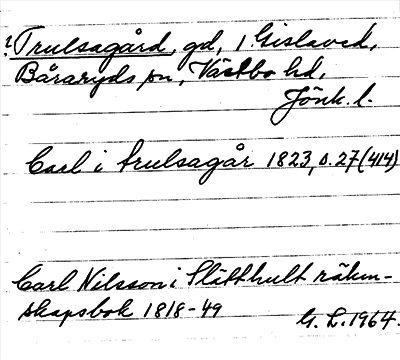 ? Trulsagård, gd, i Gislaved,
Båraryds sn, Västbo hd,
Jönk. l.
Carl i trulsagår 1823, s. 27 (414)
Carl Nilsson i Slätthult räken-
skapsbok 1818-49
G. L. 1964.